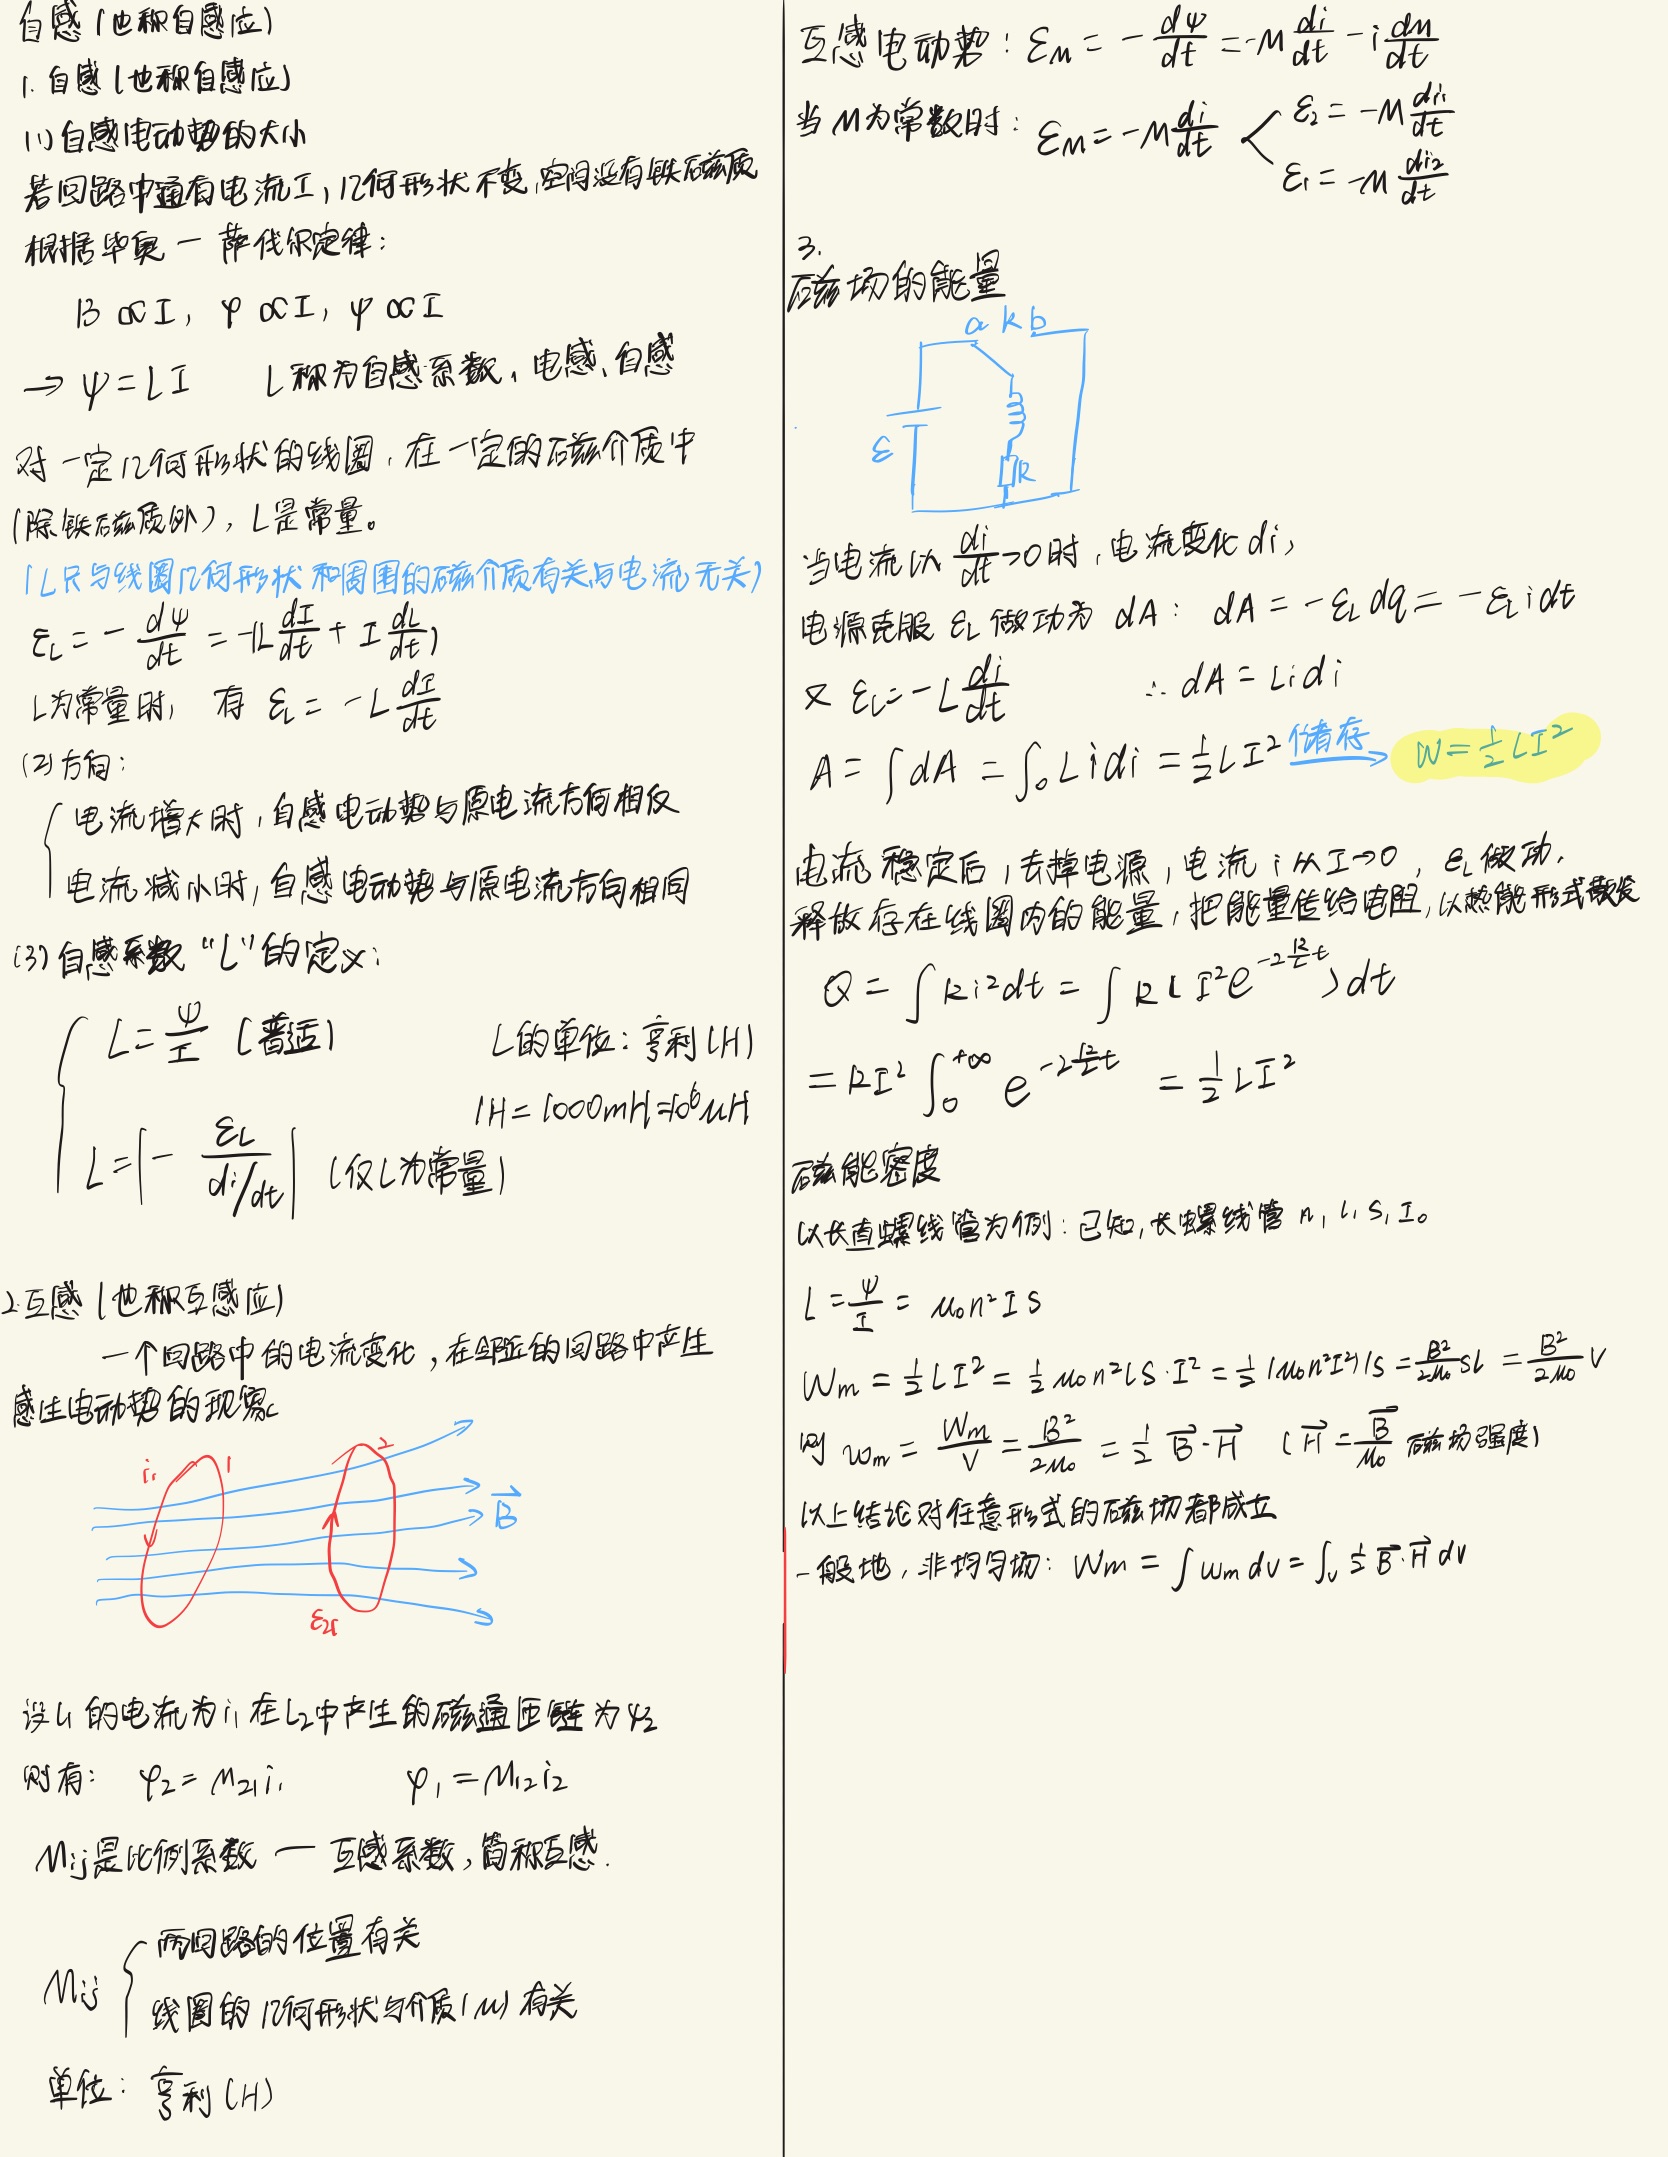 自感(也称自感应)
1. 自感(也称自感应)
(1) 自感电动势的大小
若回路中通有电流I,几何形状不变,空间没有铁磁质
根据毕奥一萨伐尔定律:
B ∝ I, φ ∝ I, ψ ∝ I
→ ψ = LI L称为自感系数、电感、自感
对一定几何形状的线圈,在一定的磁介质中
(除铁磁质外), L是常量。
(L只与线圈几何形状和周围的磁介质有关与电流无关)
ε_L = - dψ/dt = -(L dI/dt + I dL/dt)
L为常量时, 有 ε_L = -L dI/dt
(2) 方向:
电流增大时,自感电动势与原电流方向相反
电流减小时,自感电动势与原电流方向相同
(3) 自感系数“L”的定义:
L = ψ/I (普适) L的单位: 亨利(H)
1H = 1000mH = 10⁶μH
L = |- ε_L/(di/dt)| (仅L为常量)
2. 互感(也称互感应)
一个回路中的电流变化,在邻近的回路中产生
感生电动势的现象。
i₁ 1 2
B⃗
ε₂₁
设L₁的电流为i₁在L₂中产生的磁通匝链为ψ₂
则有: φ₂ = M₂₁i₁ φ₁ = M₁₂i₂
Mij是比例系数 一 互感系数,简称互感.
Mij
两回路的位置有关
线圈的几何形状与介质(μ)有关
单位: 亨利(H)
互感电动势: ε_M = - dψ/dt = -M di/dt - i dM/dt
当M为常数时: ε_M = -M di/dt < ε₂ = -M di₁/dt
ε₁ = -M di₂/dt
3.
磁场的能量
a k b
ε
R
当电流以 di/dt >0时,电流变化di,
电源克服ε_L做功为dA: dA = -ε_L dq = -ε_L i dt
又 ε_L = -L di/dt ∴ dA = Lidi
A = ∫dA = ∫₀ Lidi = ½LI² 储存→ W = ½LI²
电流稳定后,去掉电源,电流i从I→0, ε_L做功,
释放存在线圈内的能量,把能量传给电阻,以热能形式散发
Q = ∫Ri²dt = ∫R(I²e^(-2 R/L t))dt
= RI² ∫₀^(+∞) e^(-2 R/L t) = ½LI²
磁能密度
以长直螺线管为例: 已知,长螺线管 n, l, S, I。
L = ψ/I = μ₀n²IS
Wm = ½LI² = ½μ₀n²lS·I² = ½(μ₀n²I²)lS = B²/2μ₀ Sl = B²/2μ₀ V
则 wm = Wm/V = B²/2μ₀ = ½ B⃗·H⃗ (H⃗ = B⃗/μ₀ 磁场强度)
以上结论对任意形式的磁场都成立
一般地,非均匀场: Wm = ∫wm dv = ∫ᵥ ½ B⃗·H⃗ dv